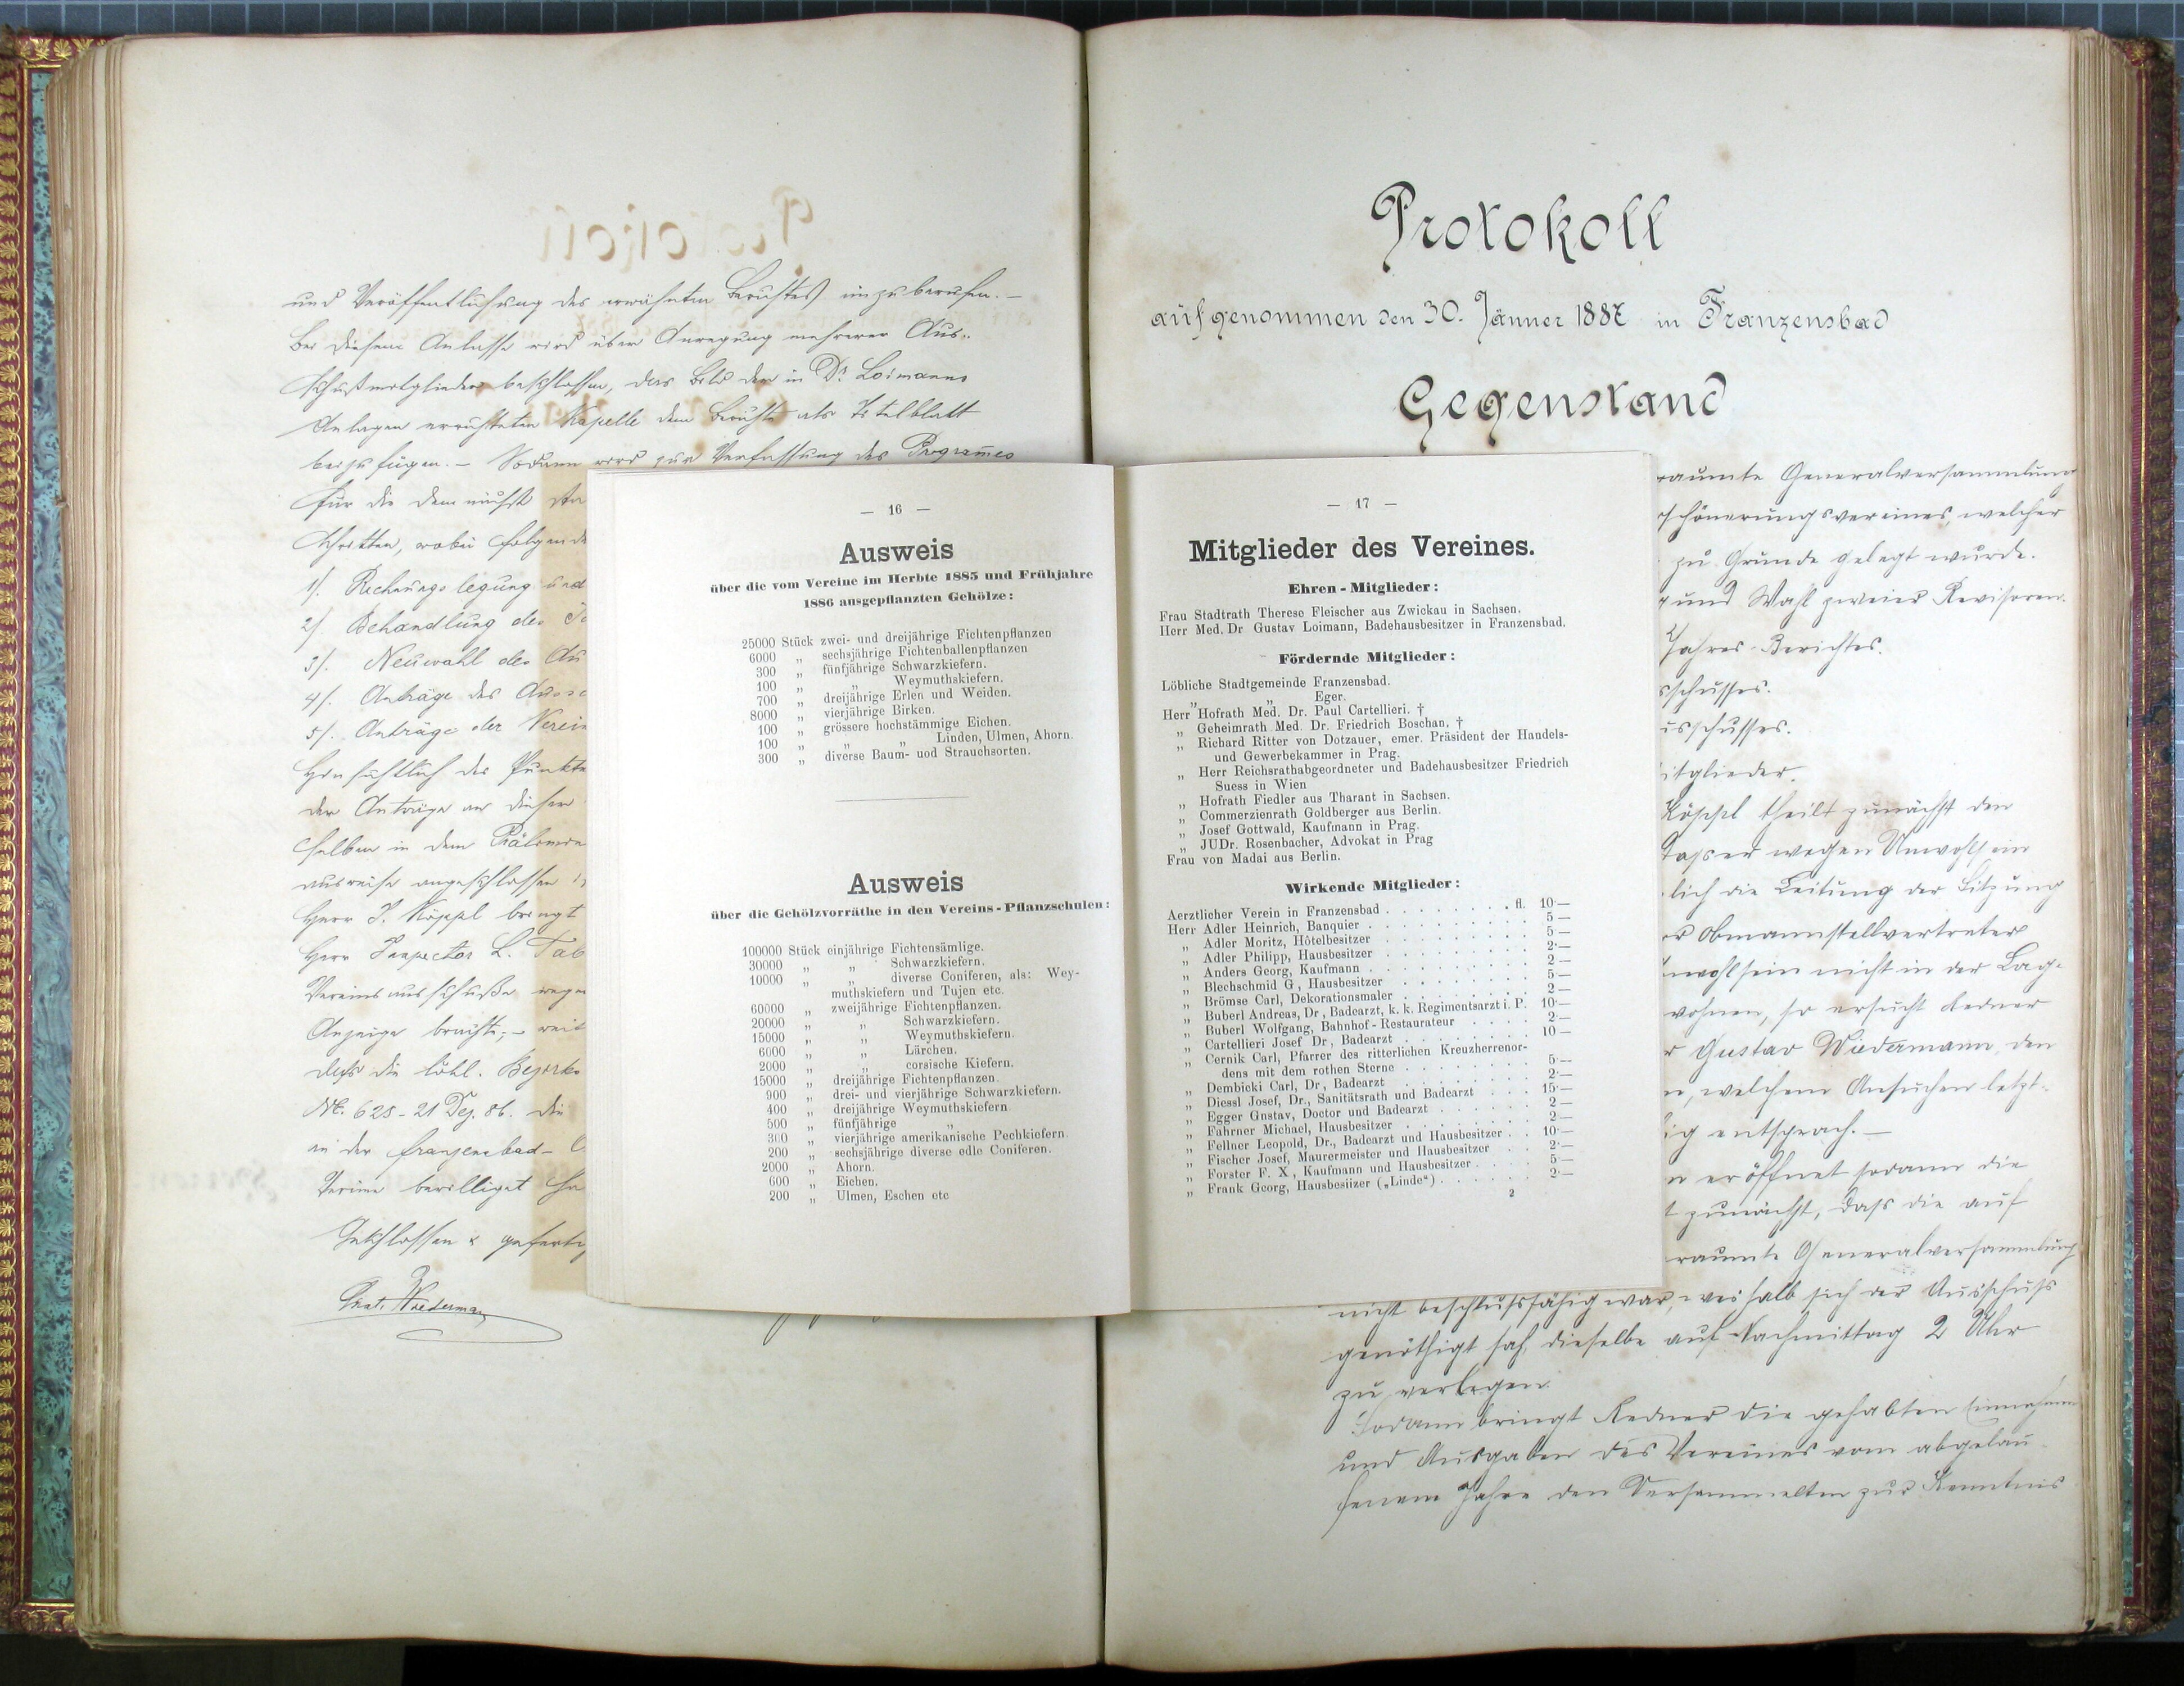 und Veröffentlichung des erwähnten Berichtes einzuberufen. –
Bei diesem Anlasse wird über Anregung mehrerer Aus-
schußmitglieder beschlossen, das Bild der in Dr. Loimanns
Anlagen errichteten Kapelle dem Berichte als Titelblatt
beizufügen. – Sodann wird zur Verfassung des Programes
für die demnächst
schritten, wobei folgende
1/. Rechnungslegung und
2/. Behandlung des
3/. Neuwahl des Au
4/. Anträge des Aussc
5/. Anträge der Verein
Hinsichtlich des Punkte
der Anträge an diesen
selben in dem
ausweise angeschlossen
Herr J. Köppl bringt
Herr Inspector L. Tab
Vereinsausschuße wegen
Anzeige brachte, – weit
daß die löbl. Bezirks
No. 628 - 21 Dez. 86. die
in der franzensbad-
Termine bewilliget ha
Geschlossen & gefertig
Gust. Wiederman
— 16 —
Ausweis
über die vom Vereine im Herbte 1885 und Frühjahre
1886 ausgepflanzten Gehölze:
25000 Stück zwei- und dreijährige Fichtenpflanzen
6000 „ sechsjährige Fichtenballenpflanzen
300 „ fünfjährige Schwarzkiefern.
100 „ „ Weymuthskiefern.
700 „ dreijährige Erlen und Weiden.
8000 „ vierjährige Birken.
100 „ grössere hochstämmige Eichen.
100 „ „ „ Linden, Ulmen, Ahorn.
300 „ diverse Baum- uod Strauchsorten.
Ausweis
über die Gehölzvorräthe in den Vereins-Pflanzschulen:
100000 Stück einjährige Fichtensämlige.
30000 „ „ Schwarzkiefern.
10000 „ „ diverse Coniferen, als: Wey-
muthskiefern und Tujen etc.
60000 „ zweijährige Fichtenpflanzen.
20000 „ „ Schwarzkiefern.
15000 „ „ Weymuthskiefern.
6000 „ „ Lärchen.
2000 „ „ corsische Kiefern.
15000 „ dreijährige Fichtenpflanzen.
900 „ drei- und vierjährige Schwarzkiefern.
400 „ dreijährige Weymuthskiefern
500 „ fünfjährige „
300 „ vierjährige amerikanische Pechkiefern.
200 „ sechsjährige diverse edle Coniferen.
2000 „ Ahorn.
600 „ Eichen.
200 „ Ulmen, Eschen etc
Protokoll
aufgenommen den 30. Jänner 1887 in Franzensbad
Gegenstand
raumte Generalversammlung
schönerungsvereines, welcher
zu Grunde gelegt wurde.
g und Wahl zweier Revisoren.
Jahres-Berichtes.
sschusses.
usschusses.
itglieder.
Köppl theilt zunächst den
daß er wegen Unwohlsein
lich die Leitung der Sitzung
er Obmannstellvertreter
Unwohlsein nicht in der Lage
wohnen, so ersucht Redner
r Gustav Wiedermann, den
n, welchem Ansuchen letzt-
ig entsprach. –
n eröffnet sodann die
t zunächst, dass die auf
raumte Generalversammlung
nicht beschlußfähig war, weshalb sich der Ausschuß
genöthigt sah, dieselbe auf Nachmittag 2 Uhr
zu verlegen.
Sodann bringt Redner die gehabten Einnahmen
und Ausgaben des Vereines vom abgelau-
fenem Jahre den Versammelten zur Kenntnis
— 17 —
Mitglieder des Vereines.
Ehren-Mitglieder:
Frau Stadtrath Therese Fleischer aus Zwickau in Sachsen.
Herr Med. Dr Gustav Loimann, Badehausbesitzer in Franzensbad.
Fördernde Mitglieder:
Löbliche Stadtgemeinde Franzensbad.
„ „ Eger.
Herr Hofrath Med. Dr. Paul Cartellieri. †
„ Geheimrath Med. Dr. Friedrich Boschan. †
„ Richard Ritter von Dotzauer, emer. Präsident der Handels-
und Gewerbekammer in Prag.
„ Herr Reichsrathabgeordneter und Badehausbesitzer Friedrich
Suess in Wien
„ Hofrath Fiedler aus Tharant in Sachsen.
„ Commerzienrath Goldberger aus Berlin.
„ Josef Gottwald, Kaufmann in Prag.
„ JUDr. Rosenbacher, Advokat in Prag
Frau von Madai aus Berlin.
Wirkende Mitglieder:
Aerztlicher Verein in Franzensbad . . . . . . . . . fl. 10·—
Herr Adler Heinrich, Banquier . . . . . . . . . . 5—
„ Adler Moritz, Hôtelbesitzer . . . . . . . . . 5—
„ Adler Philipp, Hausbesitzer . . . . . . . . . 2·—
„ Anders Georg, Kaufmann . . . . . . . . . . 2—
„ Blechschmid G, Hausbesitzer . . . . . . . . . 5—
„ Brömse Carl, Dekorationsmaler . . . . . . . . 2—
„ Buberl Andreas, Dr, Badearzt, k. k. Regimentsarzt i. P. 10·—
„ Buberl Wolfgang, Bahnhof-Restaurateur . . . . 2·—
„ Cartellieri Josef Dr, Badearzt . . . . . . . . 10—
„ Cernik Carl, Pfarrer des ritterlichen Kreuzherrenor-
dens mit dem rothen Sterne . . . . . . . . 5·—
„ Dembicki Carl, Dr, Badearzt . . . . . . . . 2·—
„ Diessl Josef, Dr., Sanitätsrath und Badearzt . . . 15·—
„ Egger Gnstav, Doctor und Badearzt . . . . . . 2—
„ Fahrner Michael, Hausbesitzer . . . . . . . . 2—
„ Fellner Leopold, Dr., Badearzt und Hausbesitzer . . 10·—
„ Fischer Josef, Maurermeister und Hausbesitzer . . 2·—
„ Forster F. X, Kaufmann und Hausbesitzer . . . . 5·—
„ Frank Georg, Hausbesiizer („Linde“) . . . . . . 2·—
2